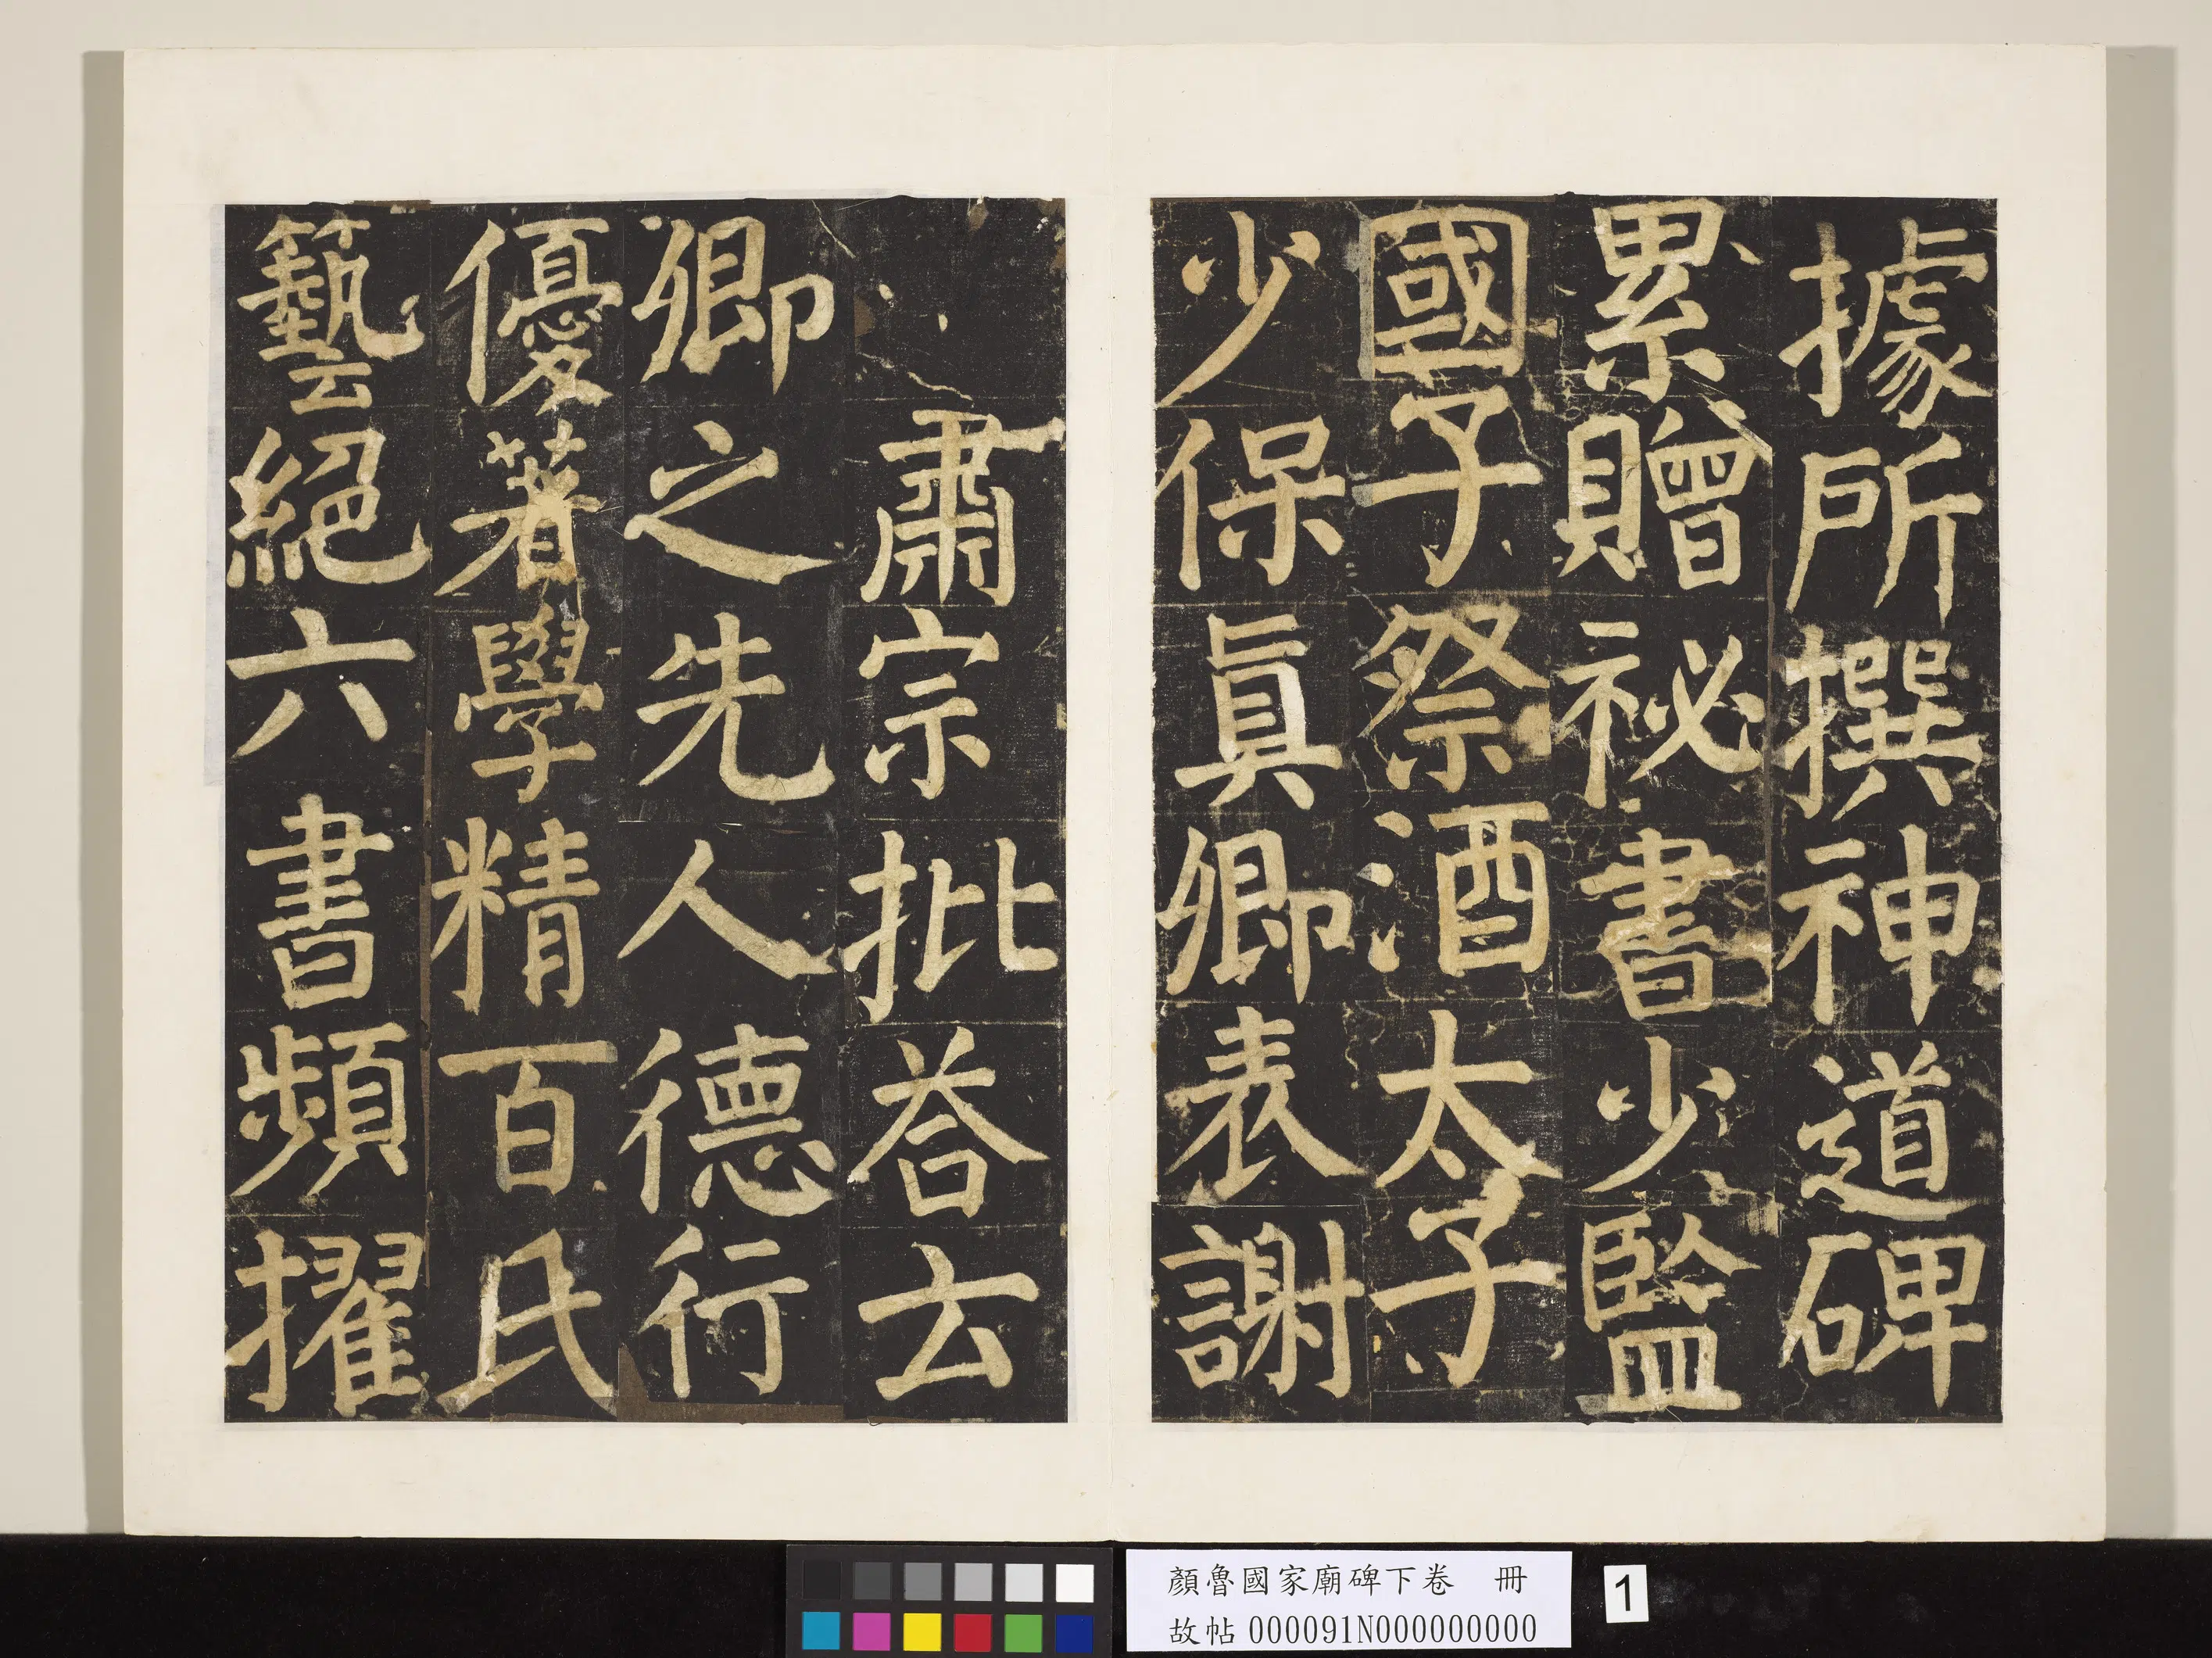 據所撰神道碑
累贈祕書少監
國子祭酒太子
少保真卿表謝
肅宗批荅云
卿之先人德行
優著學精百氏
藝絕六書頻擢
顏魯國家廟碑下卷 冊
故帖000091N000000000
1